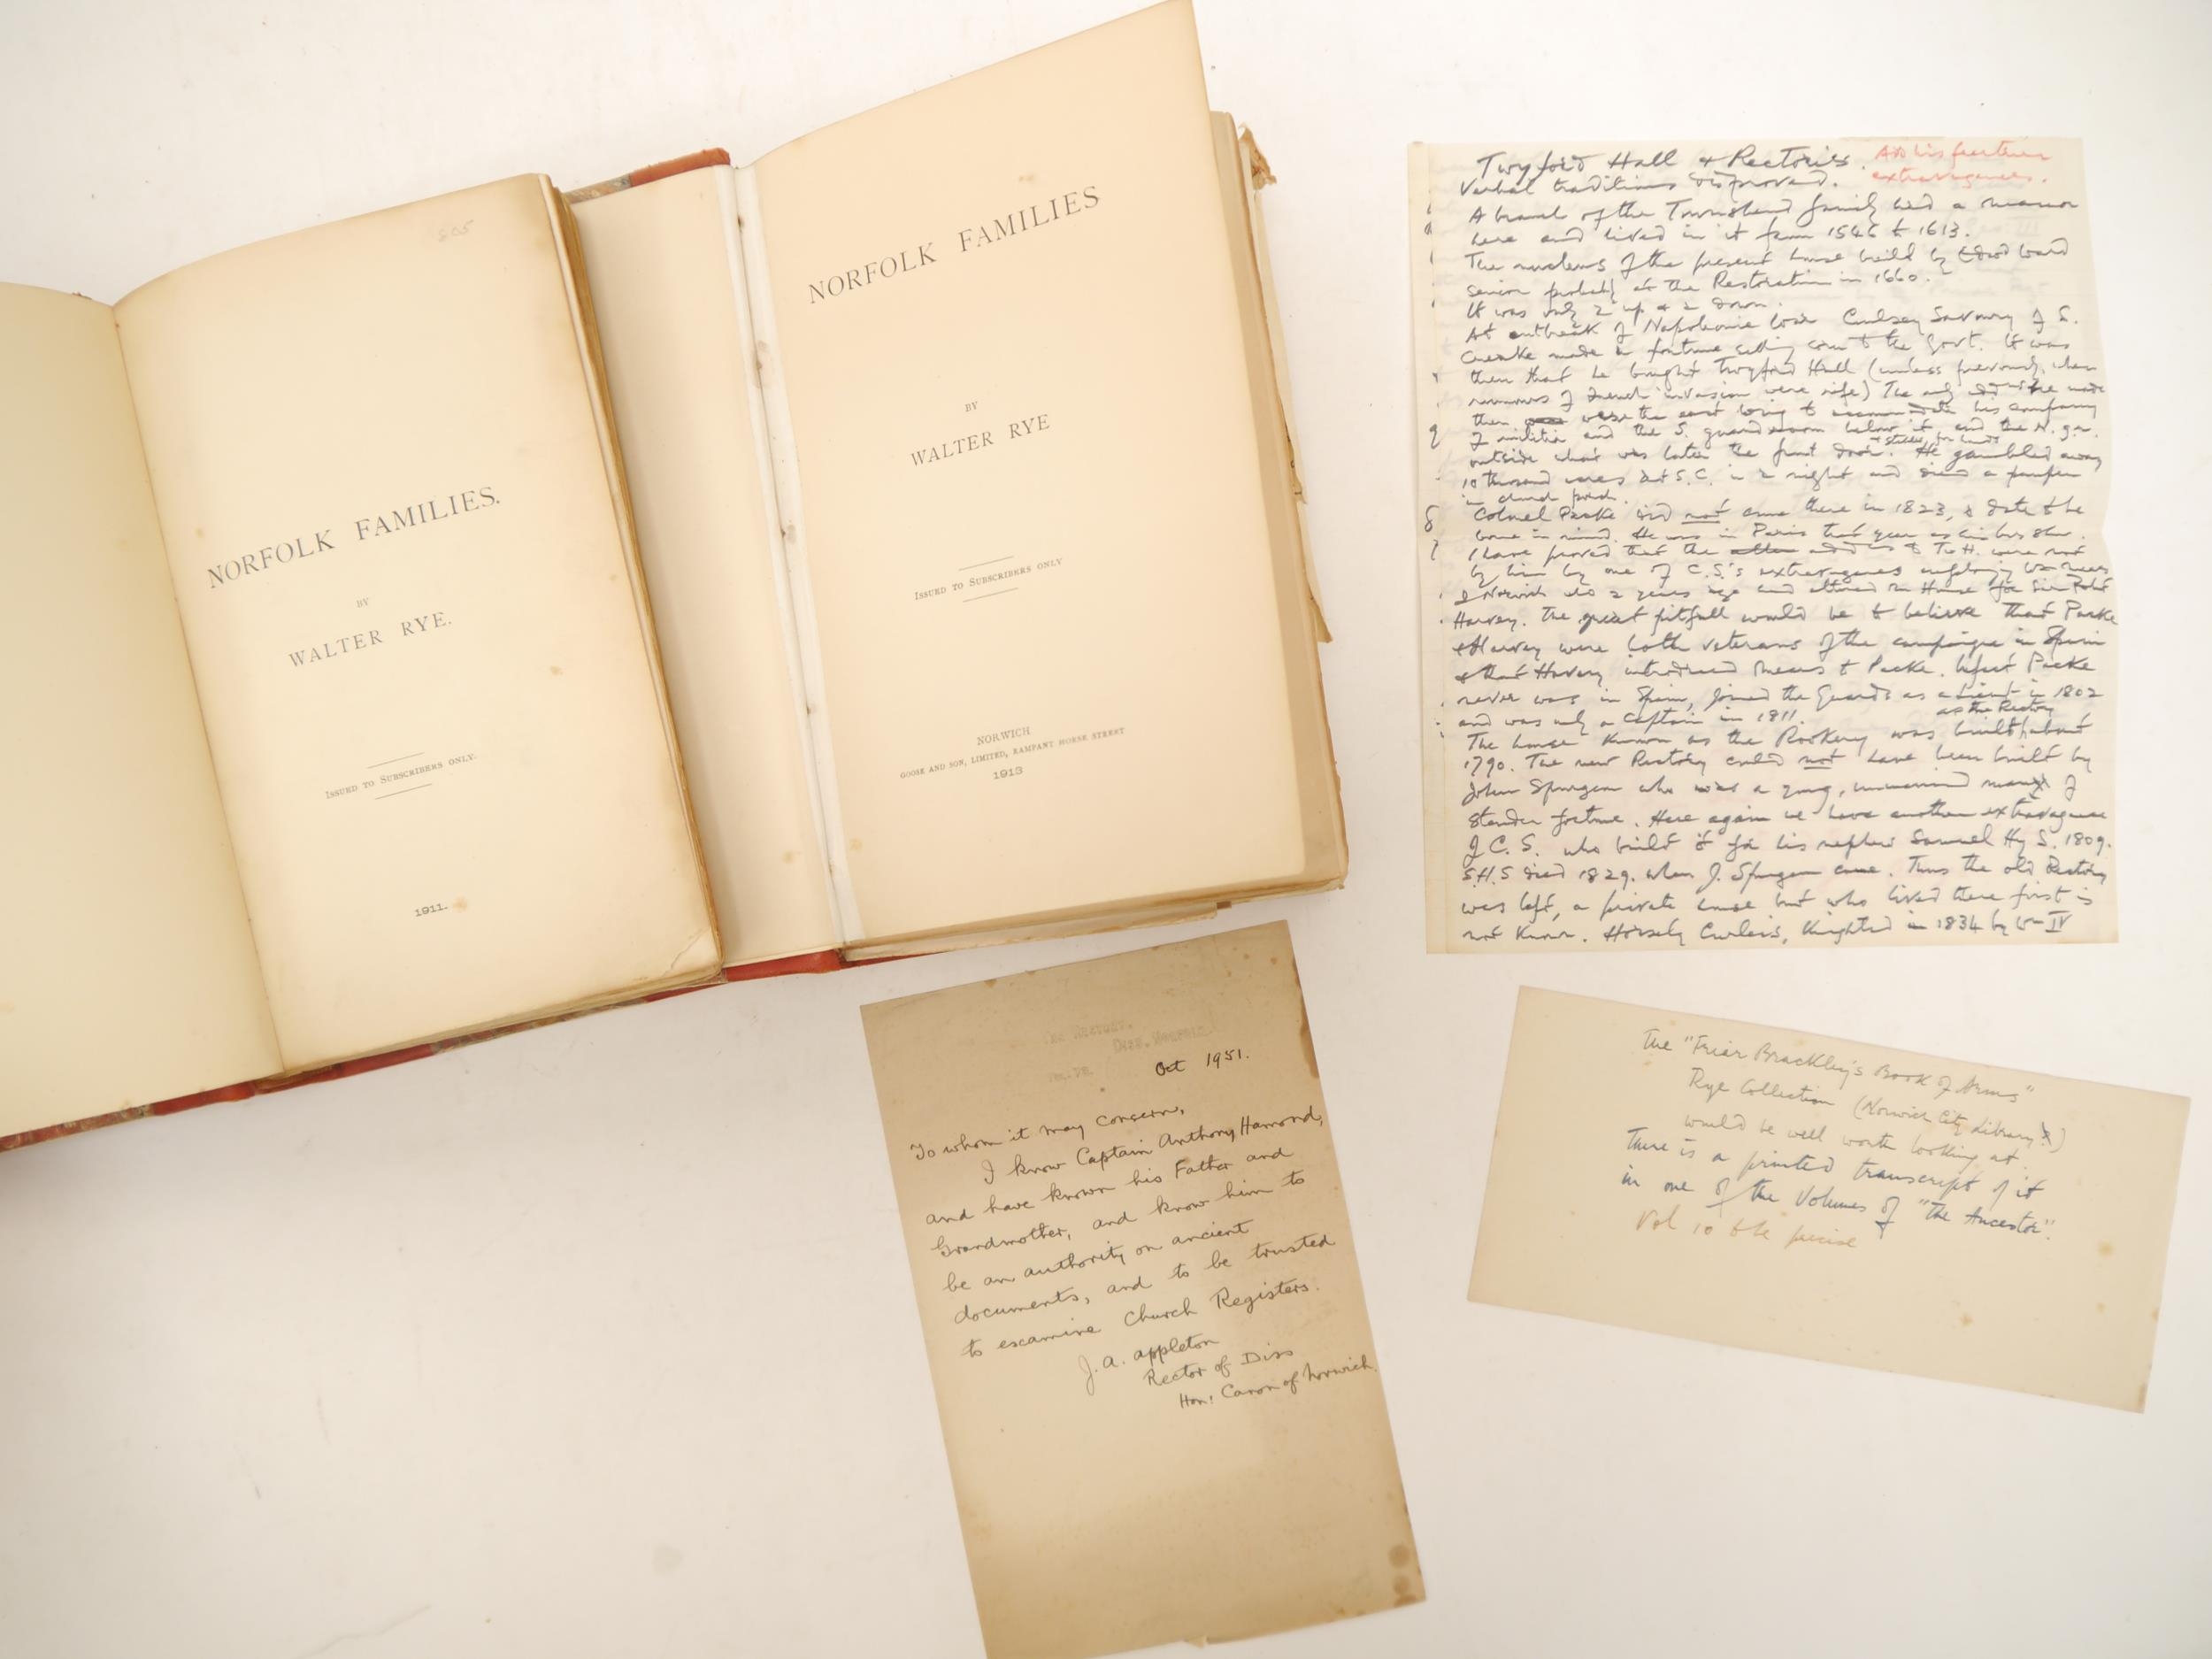 805
NORFOLK FAMILIES.
BY
WALTER RYE.
ISSUED TO SUBSCRIBERS ONLY.
1911.
NORFOLK FAMILIES
BY
WALTER RYE
ISSUED TO SUBSCRIBERS ONLY
NORWICH
GOOSE AND SON, LIMITED, RAMPANT HORSE STREET
1913
Twyford Hall & Rectories.
extravagances.
Verbal traditions disproved.
A branch of the Townshend family had a manor
here and lived in it from 1546 to 1613.
The nucleus of the present house build by
senior probably at the Restoration in 1660.
It was only 2 up & 2 down.
At outbreak of Napoleonic War Savoury of S.
Creake made a fortune selling corn to the Govt. It was
then that he bought Twyford Hall (unless previously, when
rumours of French invasion were rife) The only made
then were the east wing to accommodate his company
of militia and the S. guardroom below it and the N. g.r.
outside what was later the front door. He gambled away
10 thousand acres at S.C. in a night and died a pauper
in
Colonel Packe did not come there in 1823, a date to be
borne in mind. He was in Paris that year as
I have proved that the to T.H. were not
by him by one of C.S.'s extravagances employing
of Norwich who 2 years ago had altered the House for Sir Robt
Harvey. The great pitfall would be to believe that Packe
& Harvey were both veterans of the campaign in Spain
& that Harvey introduced Mears to Packe. Infact Packe
never was in Spain, joined the Guards as a Lieut in 1802
and was only a Captain in 1811.
as the Rectory
The house known as the Rookery was built about
1790. The new Rectory could not have been built by
John Spurgeon who was a young, unmarried man of
slender fortune. Here again we have another extravagance
of C.S. who build it for his nephew Samuel Hy S. 1809.
S.H.S died 1829. when J. Spurgeon came. Thus the old Rectory
was left, a private house but who lived there first is
not known. Horsely Curteis, knighted in 1834 by Wm IV
The Rectory.
Diss, Norfolk.
Oct 1951.
To whom it may concern,
I know Captain Anthony Hamond,
and have known his Father and
Grandmother, and know him to
be an authority on ancient
documents, and to be trusted
to examine Church Registers.
J. A. Appleton
Rector of Diss
Hon: Canon of Norwich.
The "Friar Brackley's Book of Arms"
Rye Collection (Norwich City Library?)
would be well worth looking at.
There is a printed transcript of it
in one of the Volumes of "The Ancestor".
Vol 10 to be precise